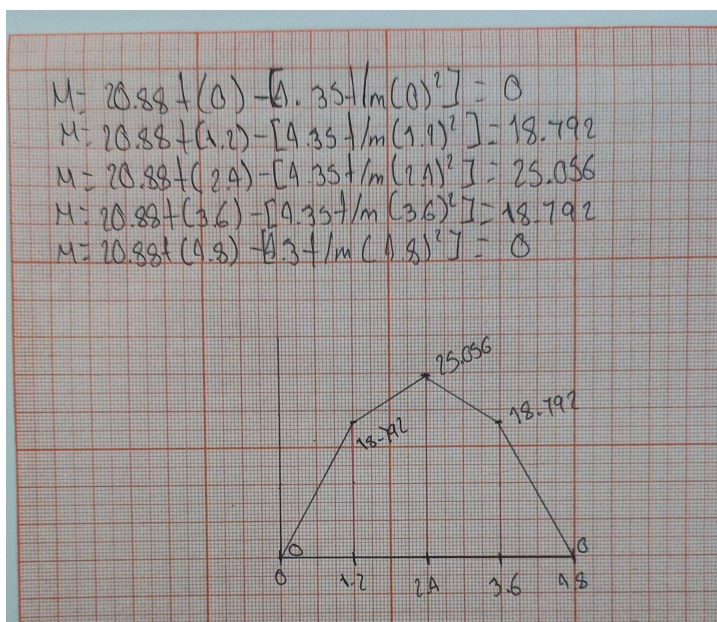 M= 20.88 t (0) - [4.35 t/m (0)²] = 0
M= 20.88 t (1.2) - [4.35 t/m (1.2)²] = 18.792
M= 20.88 t (2.4) - [4.35 t/m (2.4)²] = 25.056
M= 20.88 t (3.6) - [4.35 t/m (3.6)²] = 18.792
M= 20.88 t (4.8) - [4.3 t/m (4.8)²] = 0
25.056
18.792
18.792
0
0
0
1.2
2.4
3.6
4.8